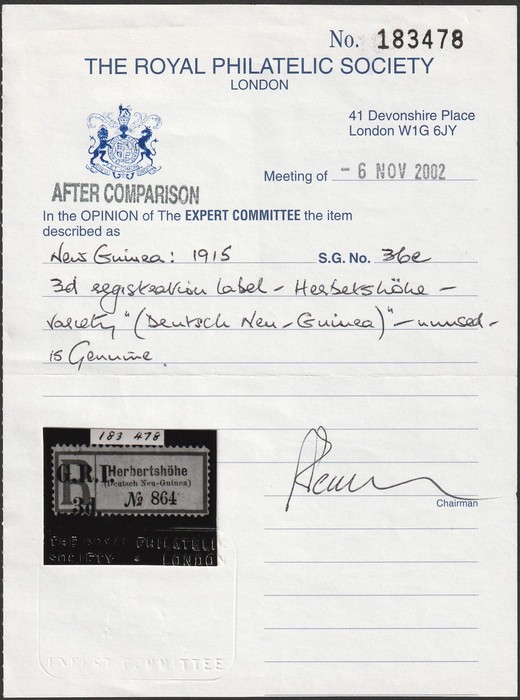 No. 183478
THE ROYAL PHILATELIC SOCIETY
LONDON
41 Devonshire Place
London W1G 6JY
Meeting of - 6 NOV 2002
AFTER COMPARISON
In the OPINION of The EXPERT COMMITTEE the item
described as
New Guinea: 1915 S.G. No. 36e
3d registration label - Herbertshöhe -
variety "(Deutsch Neu-Guinea)" - unused -
is Genuine.
183 478
G.R.I. Herbertshöhe
R (Deutsch Neu-Guinea)
3d № 864
Chairman
THE ROYAL PHILATELIC
SOCIETY LONDON
EXPERT COMMITTEE